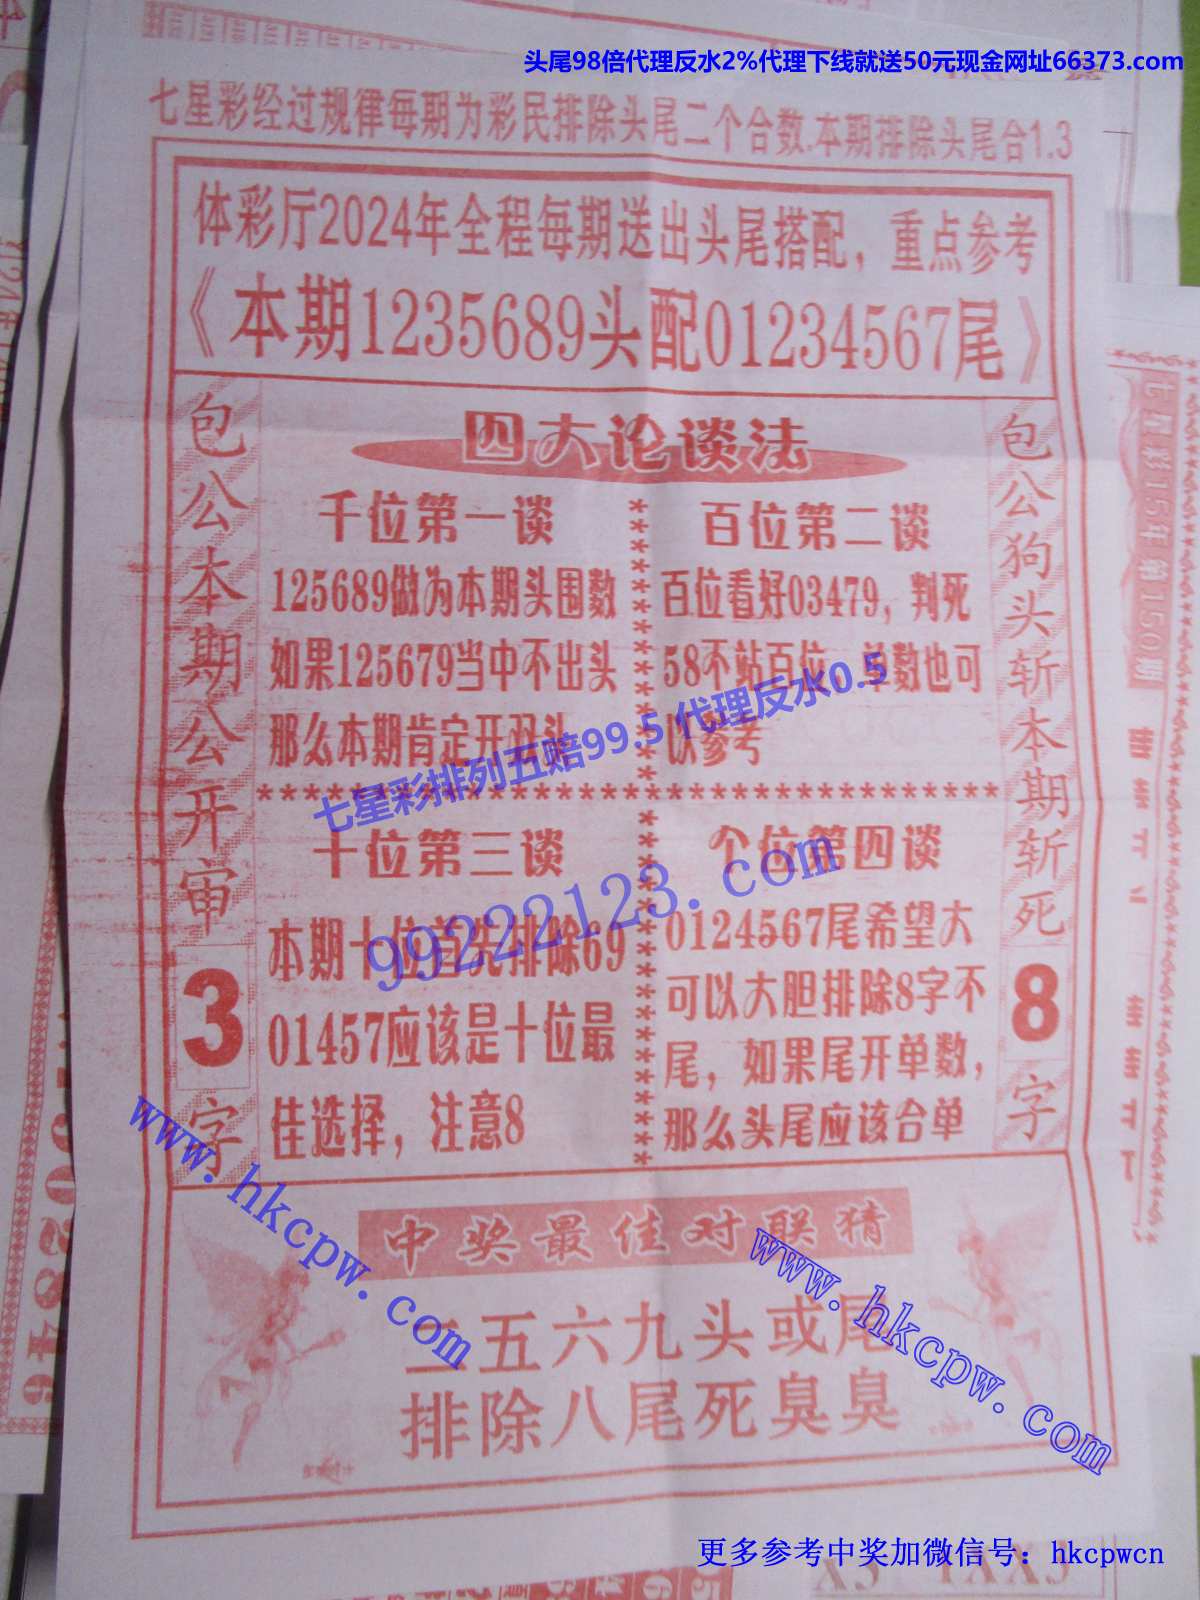 头尾98倍代理反水2%代理下线就送50元现金网址66373.com
七星彩经过规律每期为彩民排除头尾二个合数.本期排除头尾合1.3
体彩厅2024年全程每期送出头尾搭配，重点参考
《本期1235689头配01234567尾》
包公本期公开审3字
四大论谈法
千位第一谈
125689做为本期头围数
如果125679当中不出头
那么本期肯定开双头
百位第二谈
百位看好03479，判死
58不站百位，单数也可
以参考
七星彩排列五赔99.5 代理反水0.5
十位第三谈
本期十位首先排除69
01457应该是十位最
佳选择，注意8
99222123.com
个位第四谈
0124567尾希望大
可以大胆排除8字不
尾，如果尾开单数，
那么头尾应该合单
包公狗头斩本期斩死8字
七星彩15年第150期
www.hkcpw.com
中奖最佳对联猜
二五六九头或尾
排除八尾死臭臭
www.hkcpw.com
更多参考中奖加微信号：hkcpwcn